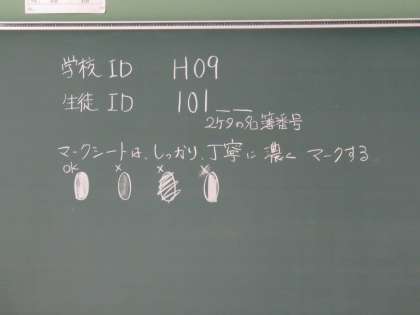 学校 ID H09
生徒 ID 101＿＿
2ケタの名簿番号
マークシートは、しっかり、丁寧に 濃く マークする
OK × × ×